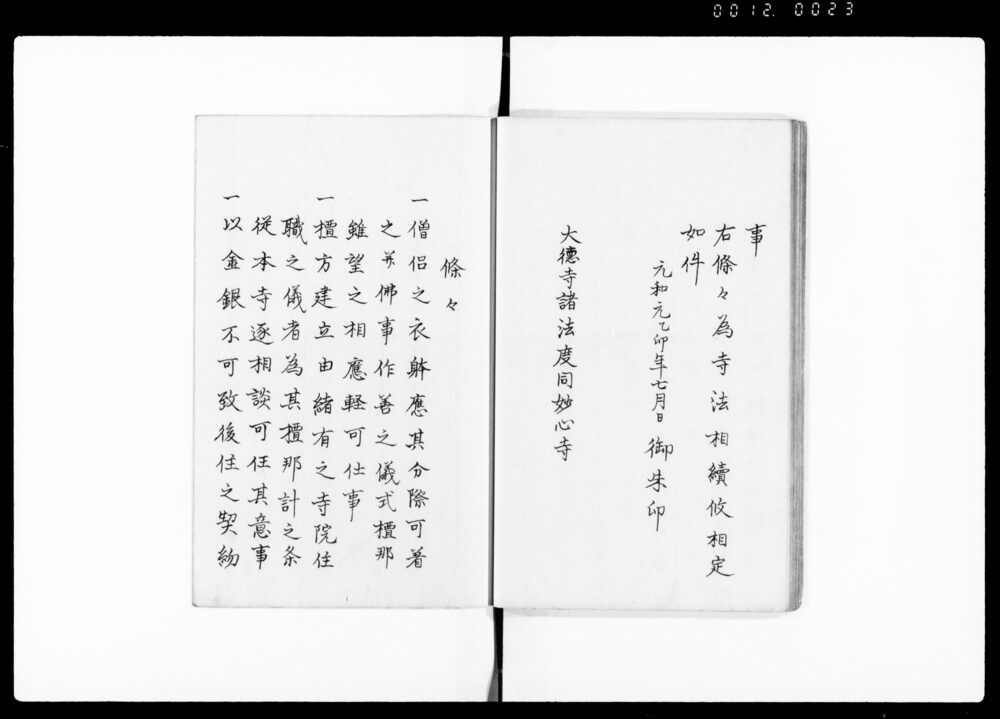 0012. 0023
事
右條々為寺法相續攸相定
如件
元和元乙卯年七月日 御朱印
大德寺諸法度同妙心寺
條々
一僧侶之衣躰應其分際可著
之并佛事作善之儀式檀那
雖望之相應軽可仕事
一檀方建立由緒有之寺院住
職之儀者為其檀那計之条
從本寺逐相談可任其意事
一以金銀不可致後住之契約